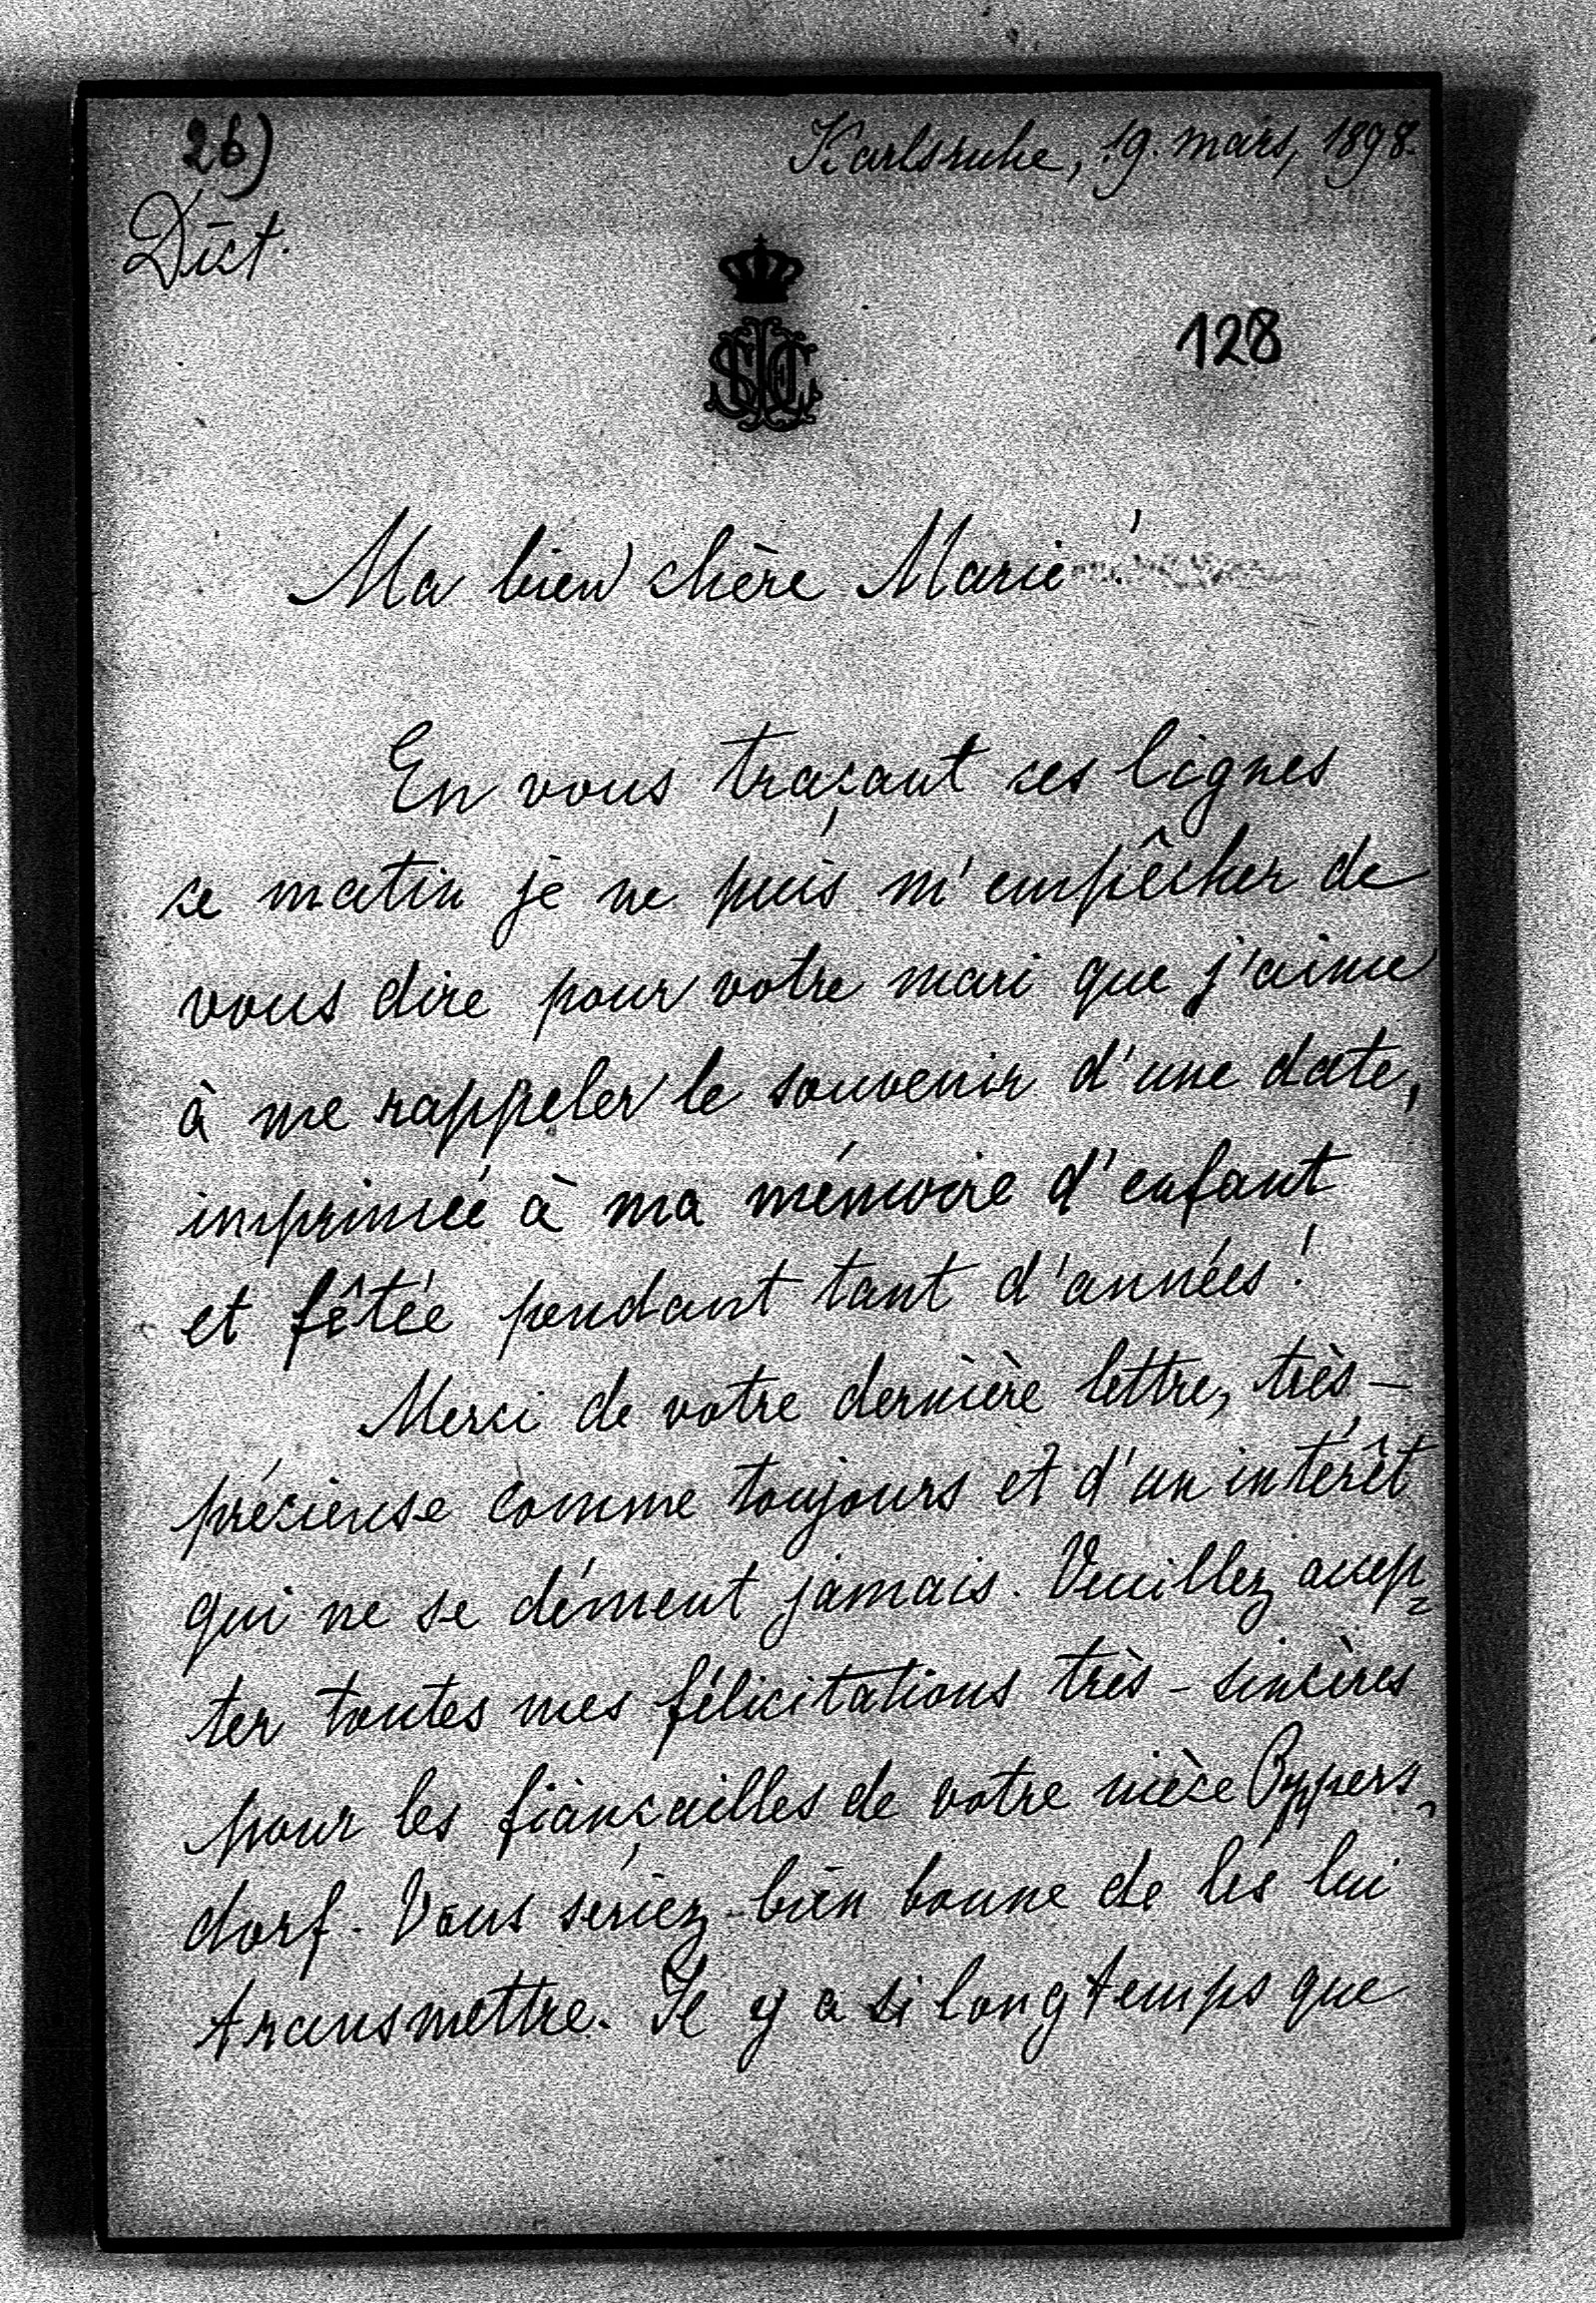 26)
Karlsruhe, 19. mars, 1898.
Dict.
128
Ma bien chère Marie!
En vous traçant ces lignes
ce matin je ne puis m'empêcher de
vous dire pour votre mari que j'aime
à me rappeler le souvenir d'une date,
imprimée à ma mémoire d'enfant
et fêtée pendant tant d'années!
Merci de votre dernière lettre, très-
précieuse comme toujours et d'un intérêt
qui ne se dément jamais. Veuillez accep=
ter toutes mes félicitations très-sincères
pour les fiançailles de votre nièce Oppers=
dorf. Vous seriez bien bonne de les lui
transmettre. Il y a si longtemps que